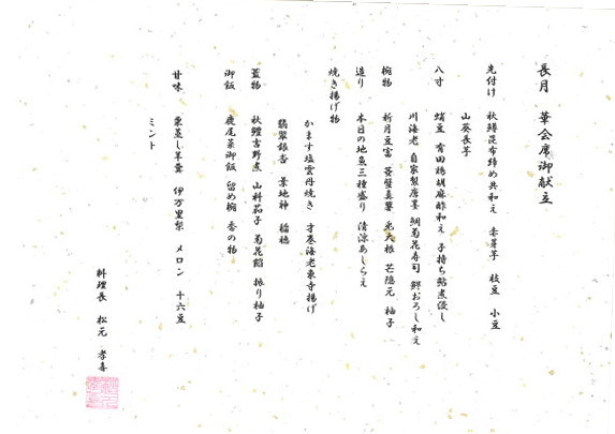 長月 華会席御献立
先付け 秋鱚昆布締め共和え 赤芋茎 枝豆 小豆
山葵長芋
八寸 蛸豆 有田鶏胡麻酢和え 子持ち鮎煮浸し
川海老 自家製唐墨 鯛菊花寿司 鮃おろし和え
椀物 新月豆富 菊蟹真薯 光大根 芒隠元 柚子
造り 本日の地魚三種盛り 清涼あしらえ
焼き揚げ物
かます塩雲丹焼き 才巻海老東寺揚げ
翡翠銀杏 葉地神 稲穂
蓋物 秋鰹吉野煮 山科茄子 菊花餡 振り柚子
御飯 鹿尾菜御飯 留め椀 香の物
甘味 栗蒸し羊羹 伊万里梨 メロン 十六豆
ミント
料理長 松元 孝喜